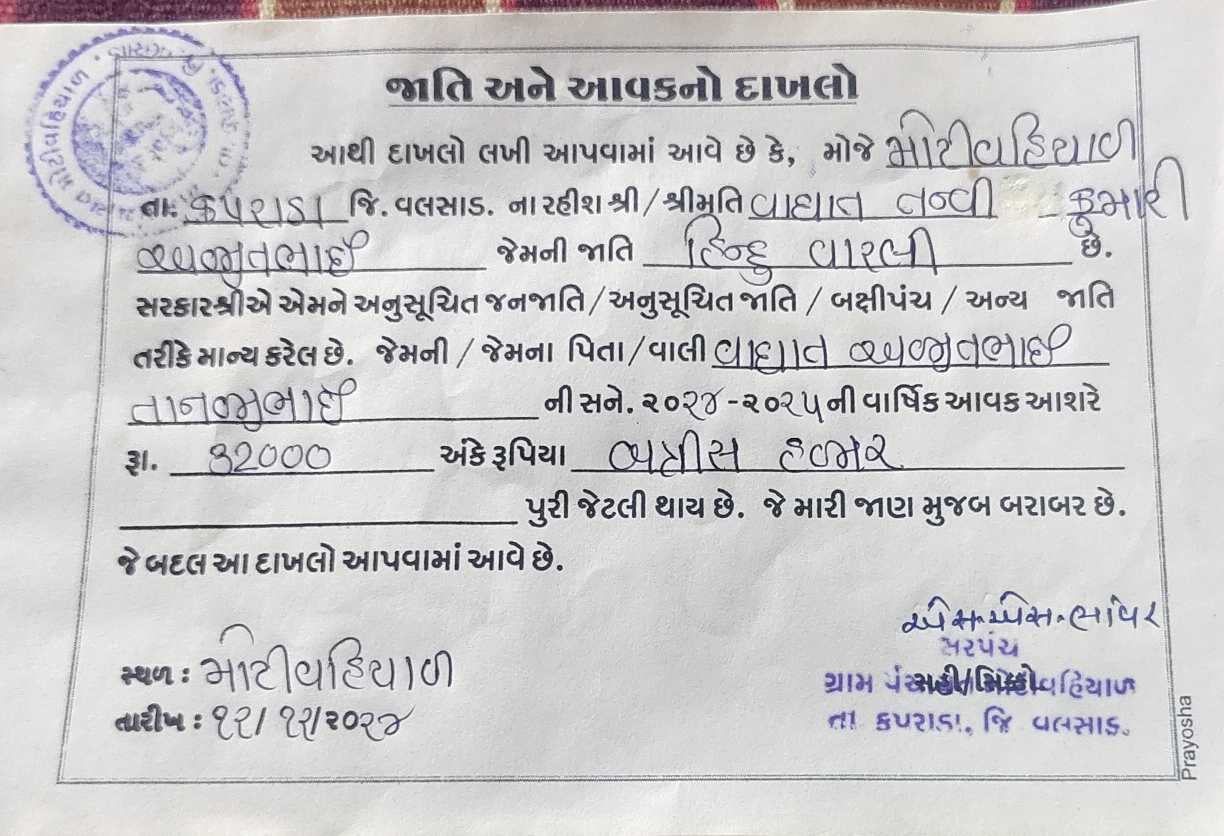 જાતિ અને આવકનો દાખલો
આથી દાખલો લખી આપવામાં આવે છે કે, મોજે મોટીવહિયાળ
તા. કપરાડા જિ. વલસાડ. ના રહીશ શ્રી/શ્રીમતિ વાઘાત તન્વી કુમારી
અજીતભાઈ જેમની જાતિ હિન્દુ વારલી છે.
સરકારશ્રીએ એમને અનુસૂચિત જનજાતિ/અનુસૂચિત જાતિ / બક્ષીપંચ / અન્ય જાતિ
તરીકે માન્ય કરેલ છે. જેમની / જેમના પિતા/વાલી વાઘાત અજીતભાઈ
તાનજીભાઈ ની સને. ૨૦૨૪-૨૦૨૫ ની વાર્ષિક આવક આશરે
રૂા. 32000 અંકે રૂપિયા બત્રીસ હજાર
પુરી જેટલી થાય છે. જે મારી જાણ મુજબ બરાબર છે.
જે બદલ આ દાખલો આપવામાં આવે છે.
એસ.એસ.ભાવર
સરપંચ
સ્થળ : મોટીવહિયાળ
ગ્રામ સહી/સિક્કો વહિયાળ
તારીખ : ૧૨/૧૨/૨૦૨૪
તા કપરાડા, જિ વલસાડ.
Prayosha